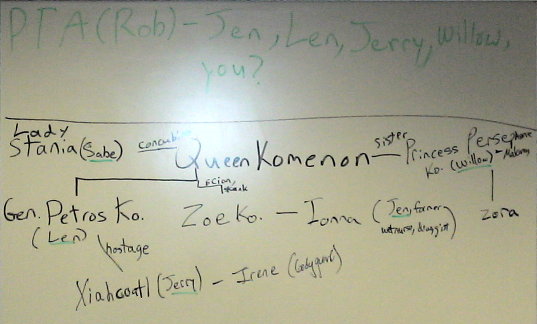 PTA (Rob) - Jen, Len, Jerry, Willow,
you?
Lady
Stania (Sabe) concubine Queen Komenon sister Princess Persephone
Ko. (Willow) -
Gen. Petros Ko. Zoe Ko. - Ionna (Jen, former
(Len) wetnurse, druggist) Zora
hostage
Xiahcoatl (Jerry) - Irene (bodyguard)